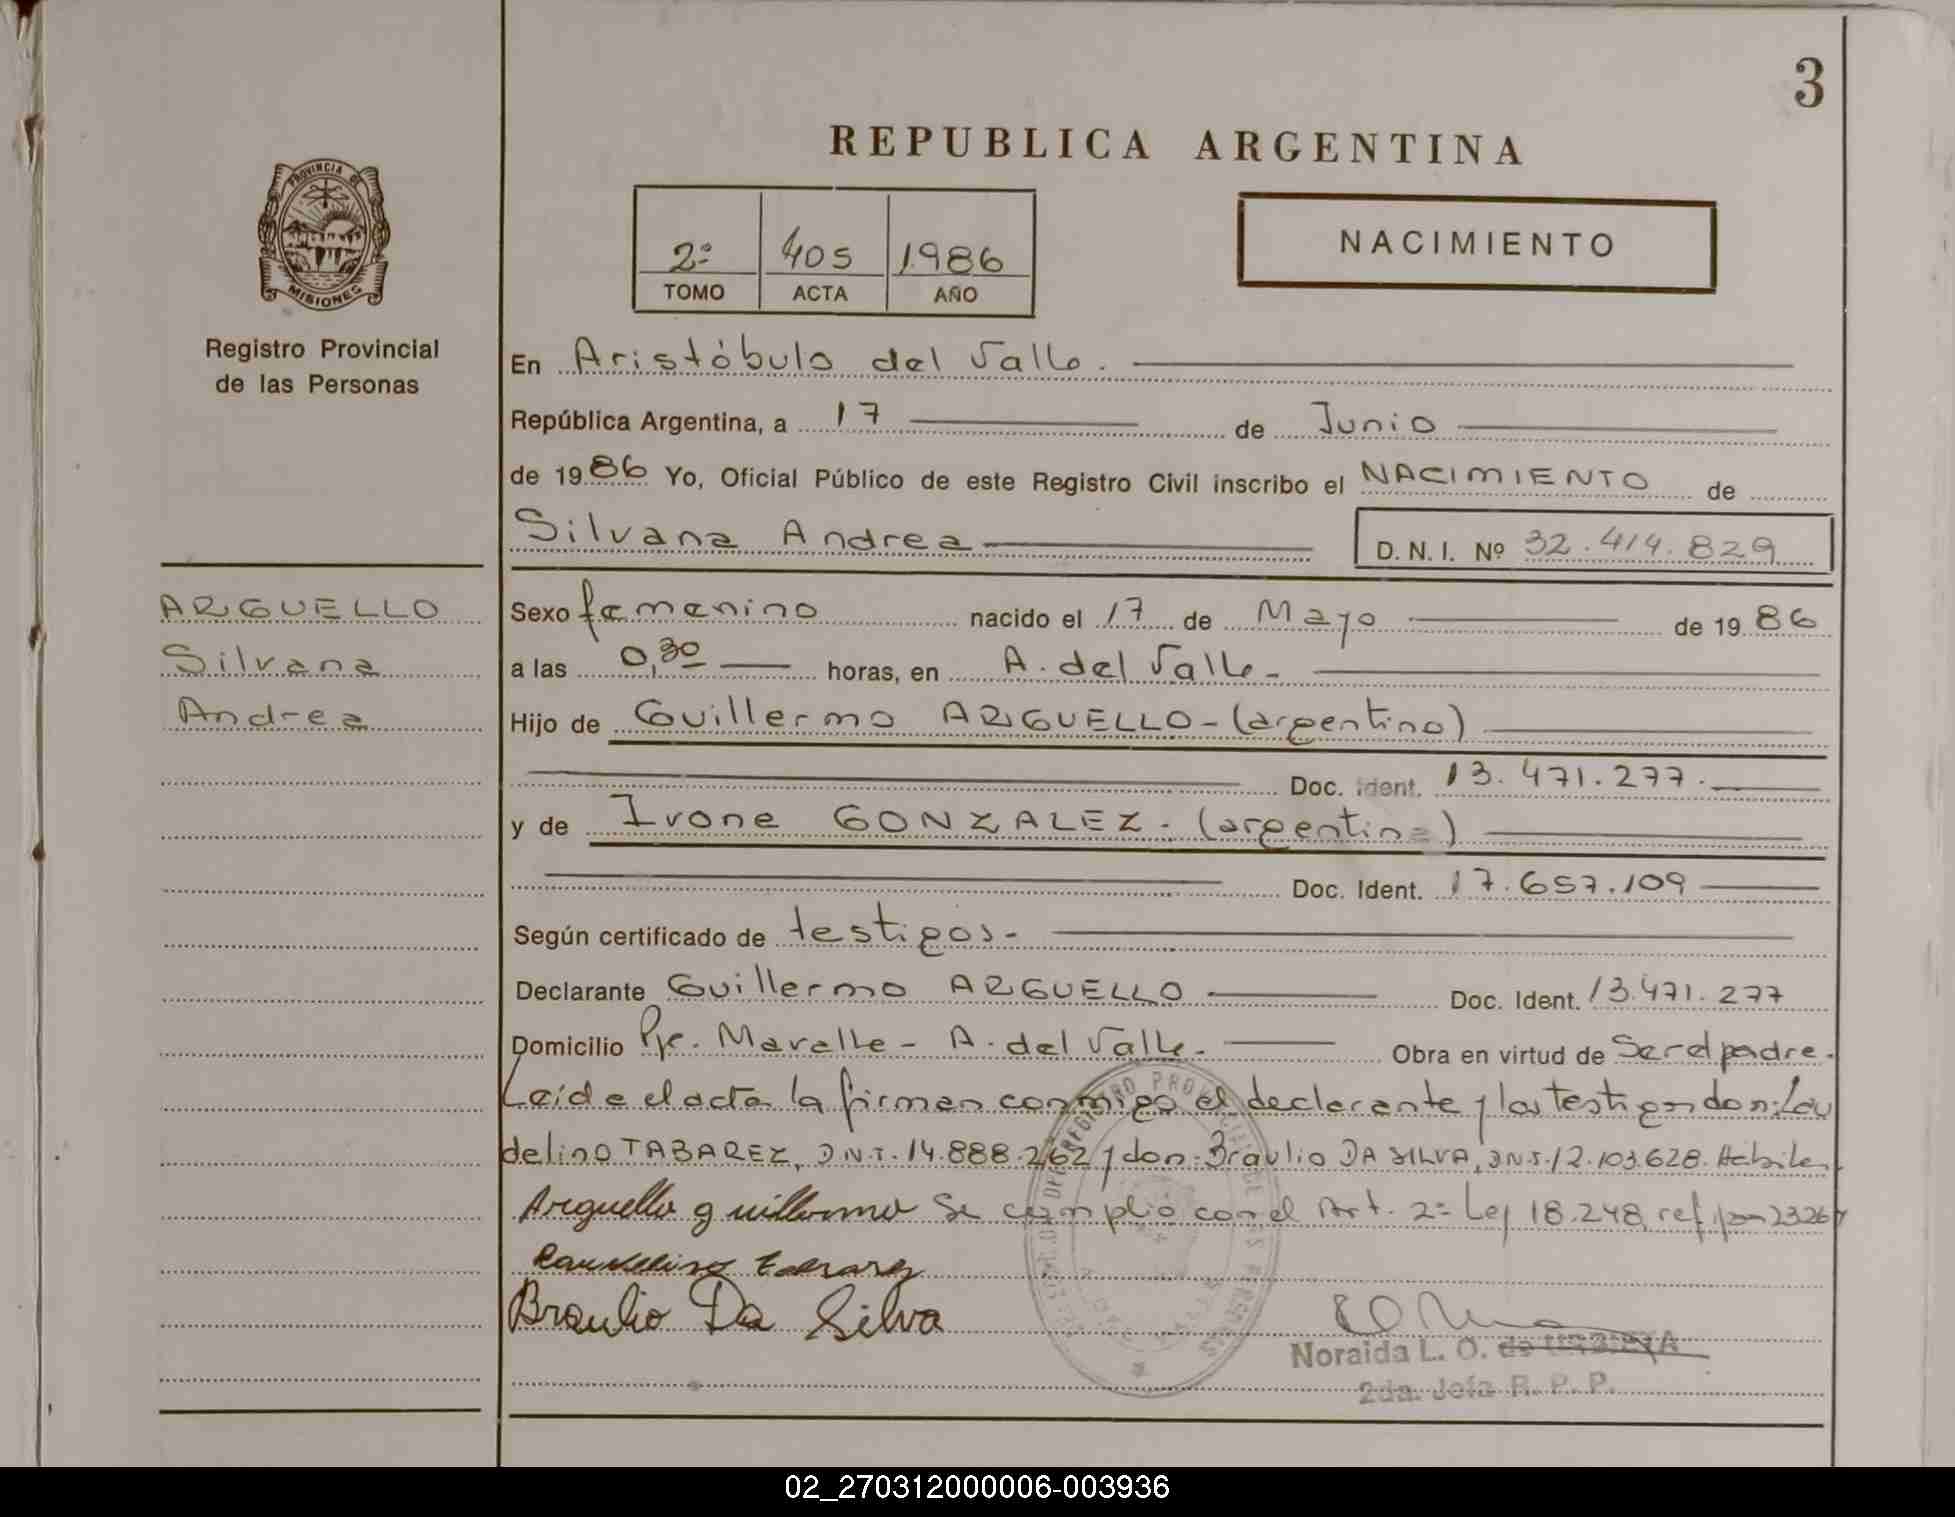 3
REPUBLICA ARGENTINA
PROVINCIA DE
MISIONES
2º 405 1986
TOMO ACTA AÑO
NACIMIENTO
Registro Provincial
de las Personas
En Aristóbulo del Valle.
República Argentina, a 17 de Junio
de 1986 Yo, Oficial Público de este Registro Civil inscribo el NACIMIENTO de
Silvana Andrea D. N. I. Nº 32.414.829
ARGUELLO
Silvana
Andrea
Sexo femenino nacido el 17 de Mayo de 1986
a las 0,30 horas, en A. del Valle-
Hijo de Guillermo ARGUELLO-(argentino)
Doc. Ident. 13.471.277.
y de Ivone GONZALEZ-(argentina)
Doc. Ident. 17.657.109
Según certificado de testigos-
Declarante Guillermo ARGUELLO Doc. Ident. 13.471.277
Domicilio A. del Valle- Obra en virtud de Ser el padre.
Leída el acta la firman conmigo el declarante y los testigos don: Lau
delino TABAREZ, D.N.I. 14.888.262 y don: Braulio DA SILVA, D.N.I. 12.103.628. Hábiles.
Arguello guillermo Se cumplió con el Art. 2º Ley 18.248, ref. por 23264
Braulio Da Silva
Noraida L. O. de
2da. Jefa R. P. P.
02_270312000006-003936